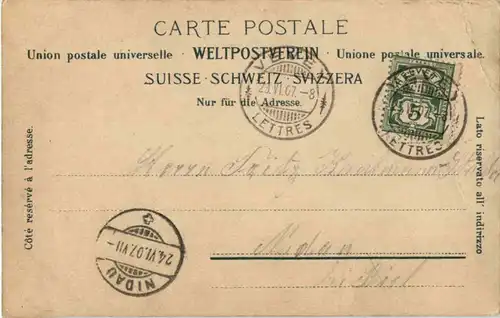 CARTE POSTALE
Union postale universelle · WELTPOSTVEREIN · Unione postale universale.
SUISSE · SCHWEIZ · SVIZZERA
Nur für die Adresse.
VEVEY
23.VI.07.-8
LETTRES
VEVEY
5
LETTRES
Côté reservé à l'adresse.
Lato riservato all' indirizzo
Herrn Fritz
Nidau
bei Biel
24.VI.07.VII-
NIDAU